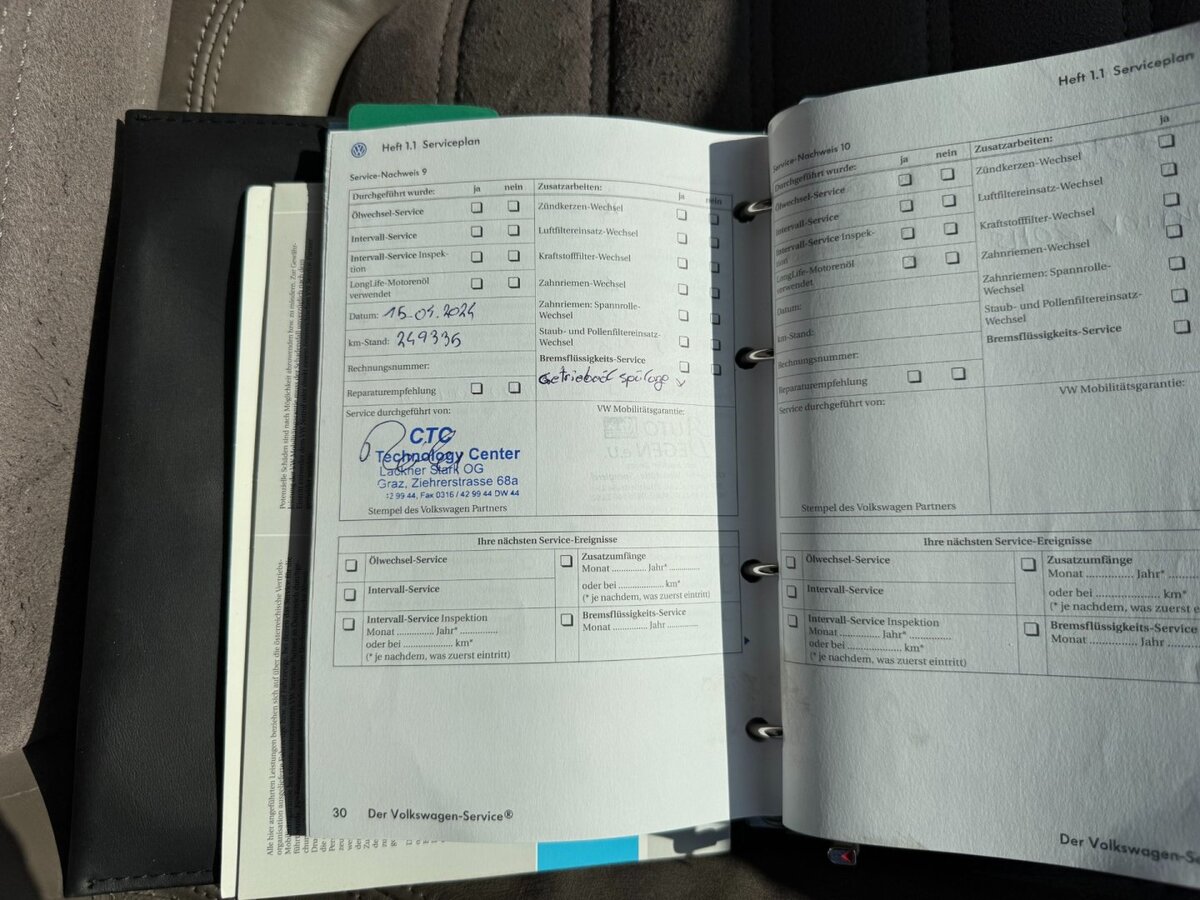 Heft 1.1 Serviceplan
Service-Nachweis 9
Durchgeführt wurde: ja nein
Ölwechsel-Service
Intervall-Service
Intervall-Service Inspek-
tion
LongLife-Motorenöl
verwendet
Datum: 15.01.2024
km-Stand: 249335
Rechnungsnummer:
Reparaturempfehlung
Zusatzarbeiten: ja nein
Zündkerzen-Wechsel
Luftfiltereinsatz-Wechsel
Kraftstofffilter-Wechsel
Zahnriemen-Wechsel
Zahnriemen: Spannrolle-
Wechsel
Staub- und Pollenfiltereinsatz-
Wechsel
Bremsflüssigkeits-Service
Service durchgeführt von:
CTC
Technology Center
Lackner Stark OG
Graz, Ziehrerstrasse 68a
42 99 44, Fax 0316 / 42 99 44 DW 44
Stempel des Volkswagen Partners
VW Mobilitätsgarantie:
Ihre nächsten Service-Ereignisse
Ölwechsel-Service
Intervall-Service
Intervall-Service Inspektion
Monat .............. Jahr* ..............
oder bei .................... km*
(* je nachdem, was zuerst eintritt)
Zusatzumfänge
Monat .............. Jahr* ..............
oder bei .................... km*
(* je nachdem, was zuerst eintritt)
Bremsflüssigkeits-Service
Monat .............. Jahr ..............
30 Der Volkswagen-Service®
Heft 1.1 Serviceplan
Service-Nachweis 10
Durchgeführt wurde: ja nein
Ölwechsel-Service
Intervall-Service
Intervall-Service Inspek-
tion
LongLife-Motorenöl
verwendet
Datum:
km-Stand:
Rechnungsnummer:
Reparaturempfehlung
Zusatzarbeiten: ja
Zündkerzen-Wechsel
Luftfiltereinsatz-Wechsel
Kraftstofffilter-Wechsel
Zahnriemen-Wechsel
Zahnriemen: Spannrolle-
Wechsel
Staub- und Pollenfiltereinsatz-
Wechsel
Bremsflüssigkeits-Service
Service durchgeführt von:
Stempel des Volkswagen Partners
VW Mobilitätsgarantie:
Ihre nächsten Service-Ereignisse
Ölwechsel-Service
Intervall-Service
Intervall-Service Inspektion
Monat .............. Jahr* ..............
oder bei .................... km*
(* je nachdem, was zuerst eintritt)
Zusatzumfänge
Monat .............. Jahr*
oder bei .................... km*
(* je nachdem, was zuerst
Bremsflüssigkeits-Service
Monat .............. Jahr
Der Volkswagen-